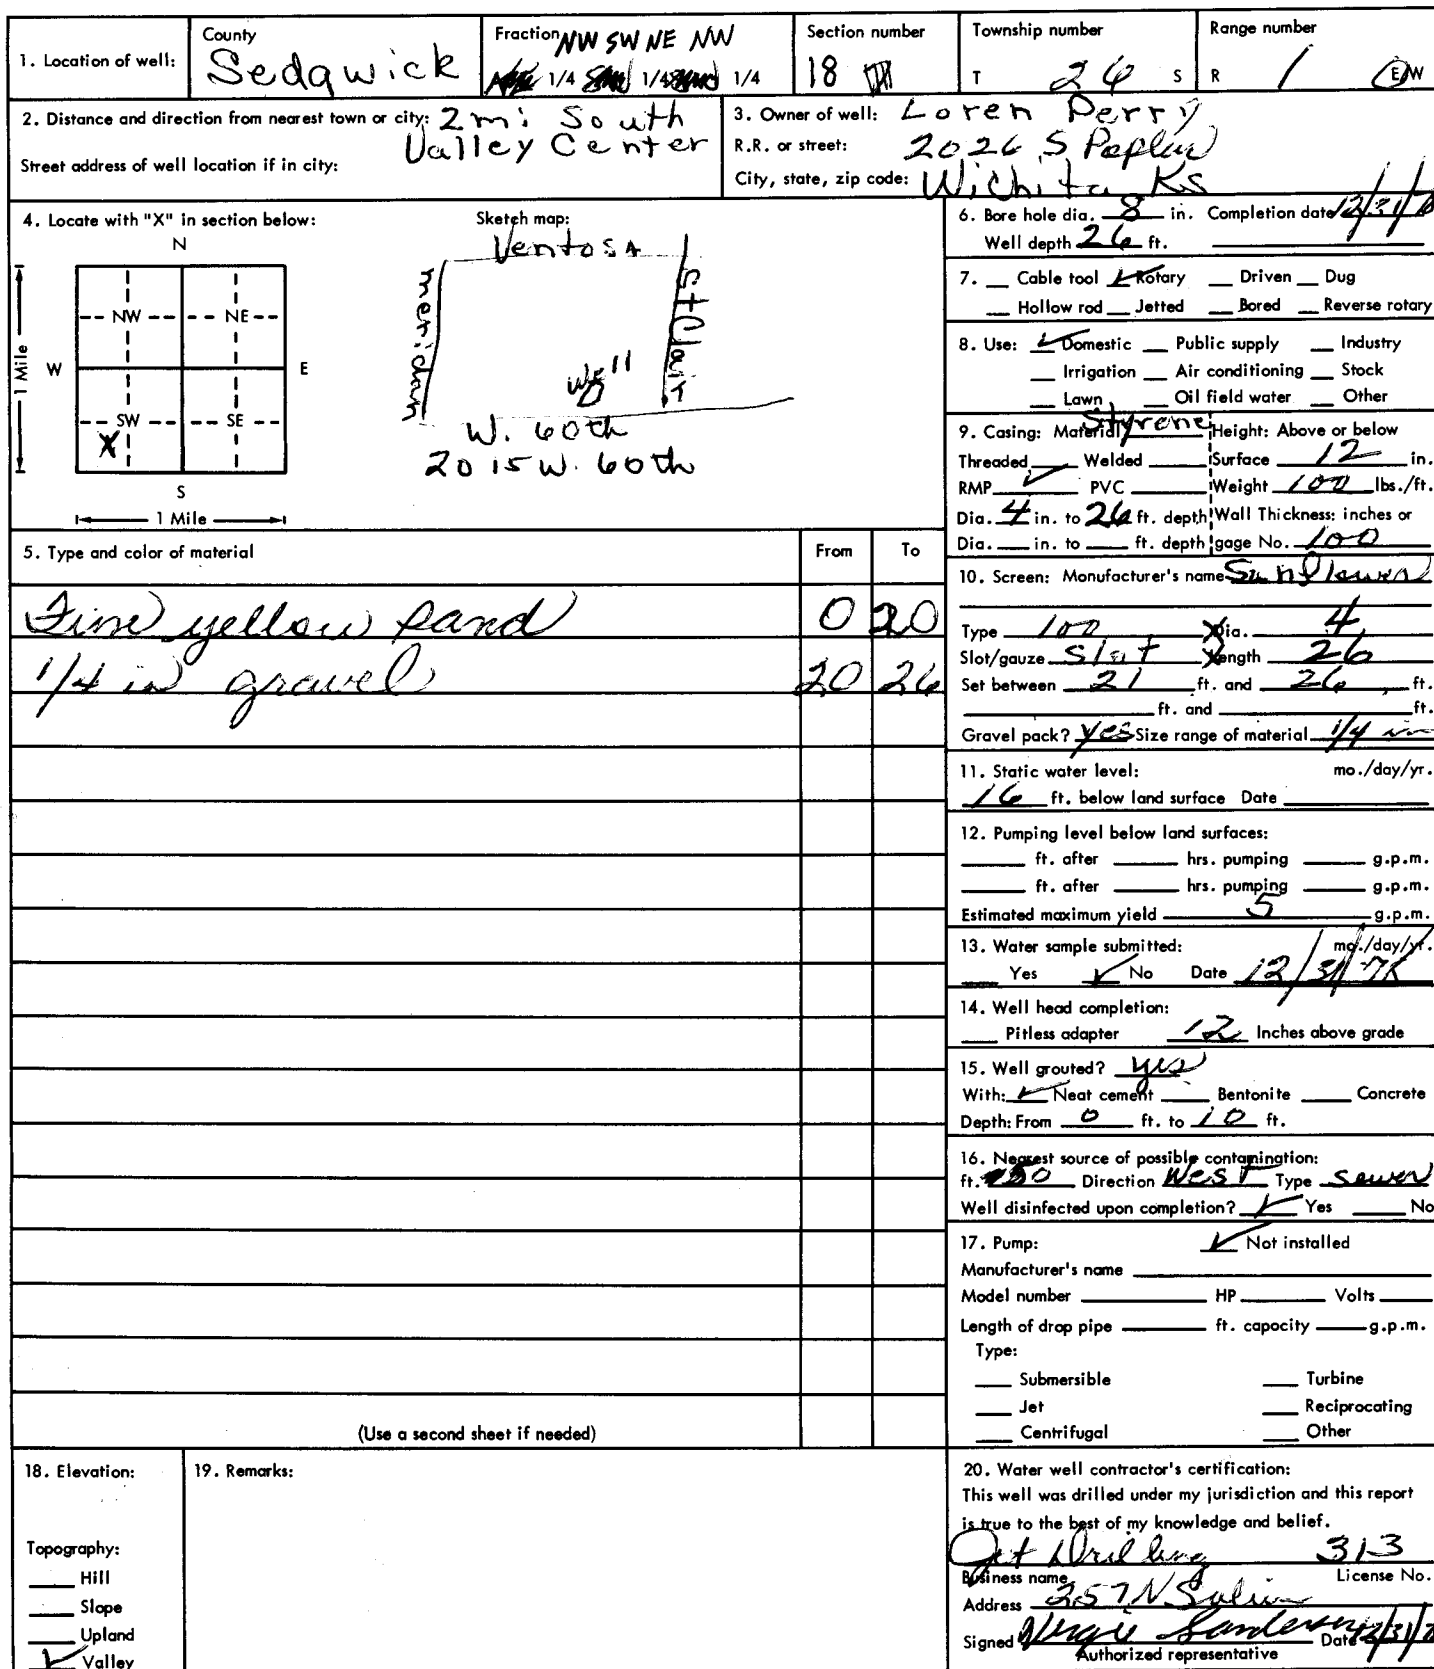 1. Location of well:
County
Sedgwick
Fraction NW SW NE NW
1/4 1/4 1/4
Section number
18
Township number
T 26 S
Range number
R 1 E/W
2. Distance and direction from nearest town or city: 2 mi South
Valley Center
Street address of well location if in city:
3. Owner of well: Loren Perry
R.R. or street: 2026 S Poplar
City, state, zip code: Wichita Ks
4. Locate with "X" in section below:
N
NW NE
W E
SW SE
X
S
1 Mile
1 Mile
Sketch map:
Ventosa
meridian
St Clair
Well
W. 60th
2015 W. 60th
6. Bore hole dia. 8 in. Completion date 12/31/
Well depth 26 ft.
7. Cable tool ✓ Rotary Driven Dug
Hollow rod Jetted Bored Reverse rotary
8. Use: ✓ Domestic Public supply Industry
Irrigation Air conditioning Stock
Lawn Oil field water Other
9. Casing: Material Styrene Height: Above or below
Threaded Welded Surface 12 in.
RMP ✓ PVC Weight 100 lbs./ft.
Dia. 4 in. to 26 ft. depth Wall Thickness: inches or
Dia. in. to ft. depth gage No. 100
5. Type and color of material From To
Fine yellow sand 0 20
1/4 in gravel 20 26
(Use a second sheet if needed)
10. Screen: Manufacturer's name Sunflower
Type 100 Dia. 4
Slot/gauze Slot Length 26
Set between 21 ft. and 26 ft.
ft. and ft.
Gravel pack? Yes Size range of material 1/4 in
11. Static water level: mo./day/yr.
16 ft. below land surface Date
12. Pumping level below land surfaces:
ft. after hrs. pumping g.p.m.
ft. after hrs. pumping g.p.m.
Estimated maximum yield 5 g.p.m.
13. Water sample submitted: mo./day/yr.
Yes ✓ No Date 12/31/
14. Well head completion:
Pitless adapter 12 Inches above grade
15. Well grouted? yes
With: ✓ Neat cement Bentonite Concrete
Depth: From 0 ft. to 10 ft.
16. Nearest source of possible contamination:
ft. 50 Direction West Type sewer
Well disinfected upon completion? ✓ Yes No
17. Pump: ✓ Not installed
Manufacturer's name
Model number HP Volts
Length of drop pipe ft. capacity g.p.m.
Type:
Submersible Turbine
Jet Reciprocating
Centrifugal Other
18. Elevation:
Topography:
Hill
Slope
Upland
✓ Valley
19. Remarks:
20. Water well contractor's certification:
This well was drilled under my jurisdiction and this report
is true to the best of my knowledge and belief.
Jet Drilling 313
Business name License No.
Address 257 N
Signed Sanders Date 12/31/
Authorized representative